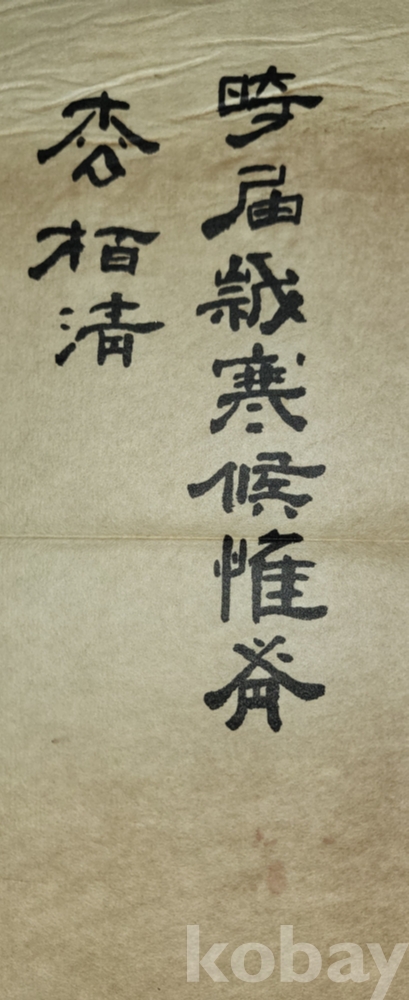 時届歲寒候惟有
枩栢清
kobay